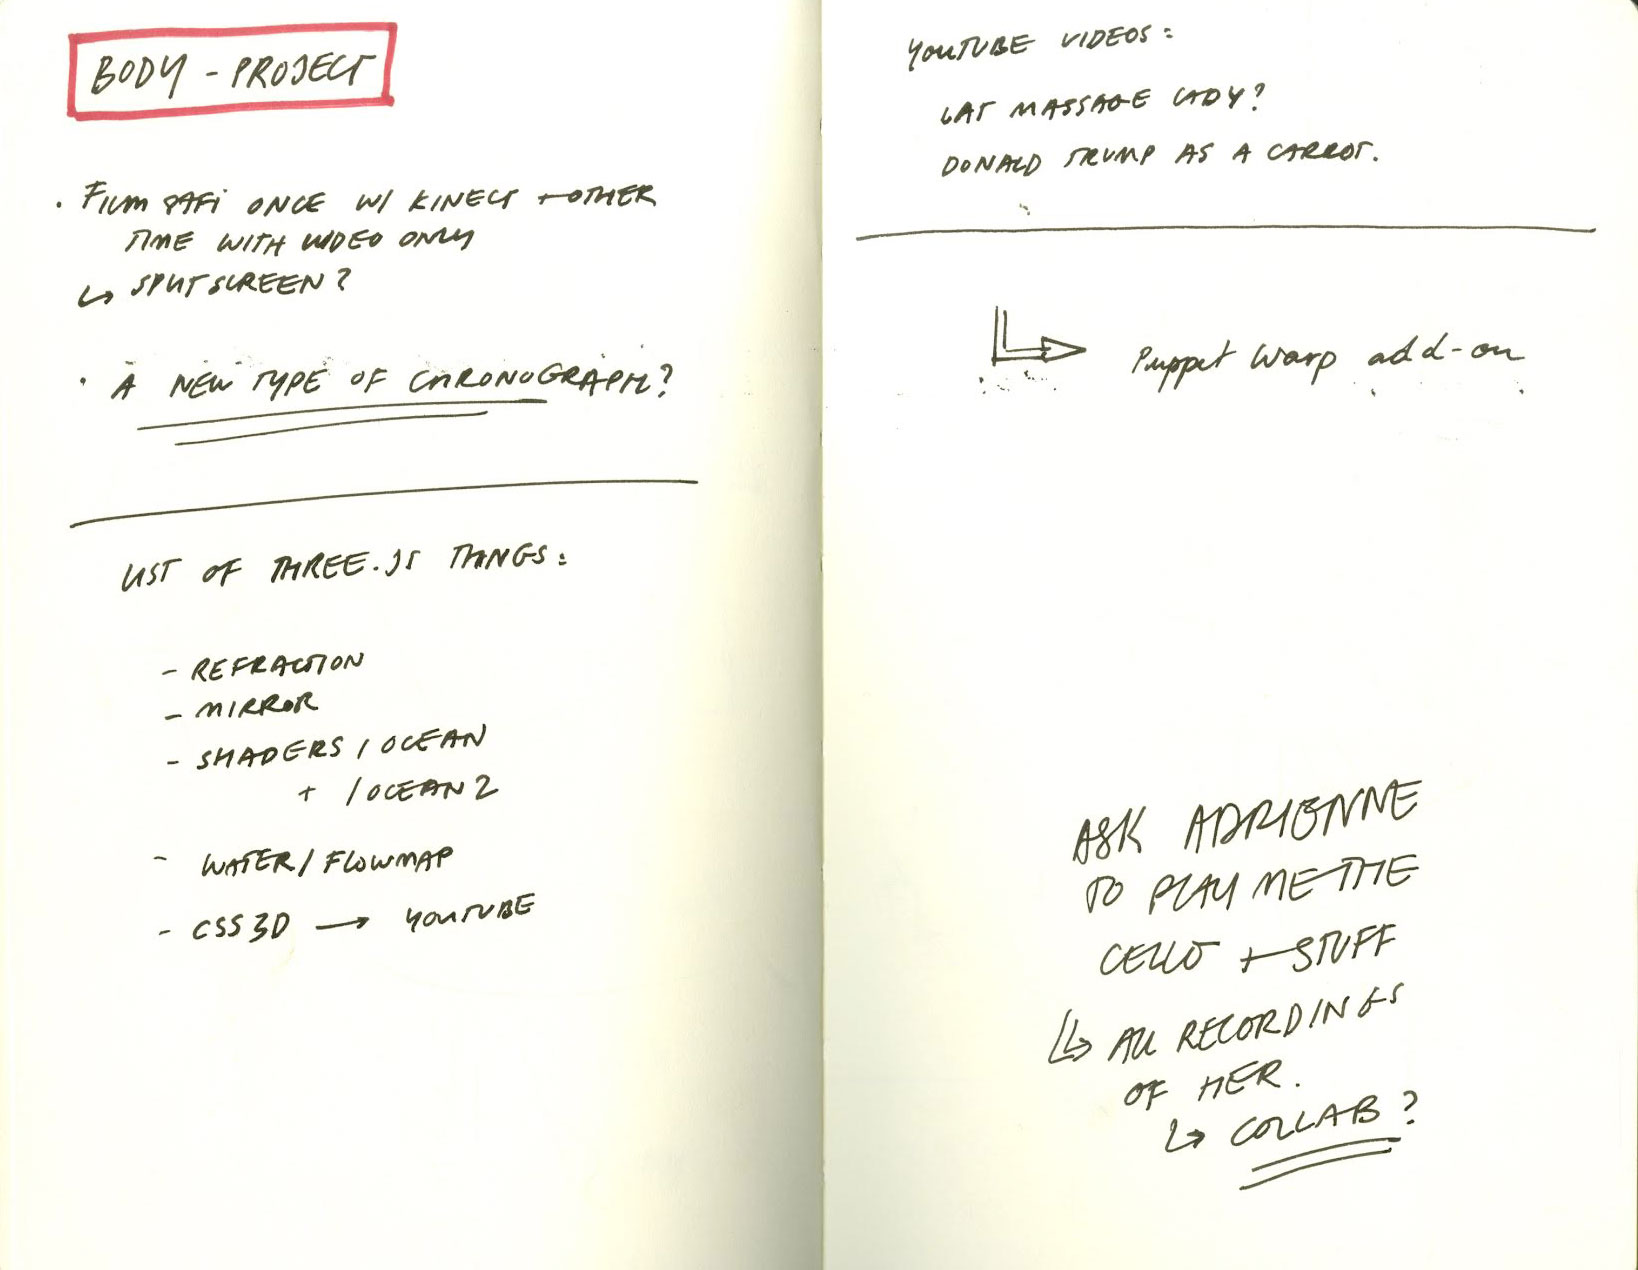 BODY - PROJECT
· FILM SAFI ONCE W/ KINECT + OTHER
TIME WITH VIDEO ONLY
↳ SPLITSCREEN?
· A NEW TYPE OF CHRONOGRAPH?
LIST OF THREE.JS THINGS:
- REFRACTION
- MIRROR
- SHADERS / OCEAN
+ / OCEAN 2
- WATER / FLOWMAP
- CSS 3D → YOUTUBE
YOUTUBE VIDEOS:
CAT MASSAGE LADY?
DONALD TRUMP AS A CARROT.
↳ Puppet Warp add-on
ASK ADRIENNE
TO PLAY ME THE
CELLO + STUFF
↳ ALL RECORDINGS
OF HER.
↳ COLLAB?